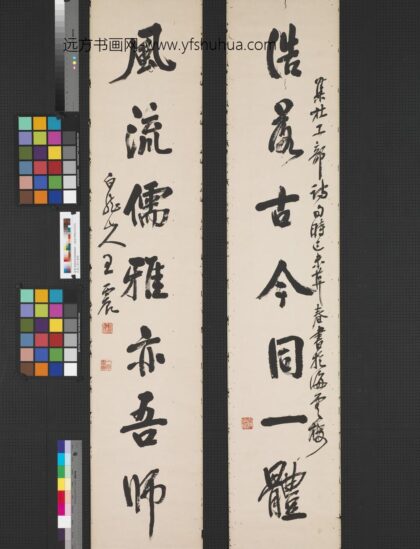 遠方书画网 www.yfshuhua.com
浩落古今同一體
集杜工部詩句時己未莫春書於海雲樓
風流儒雅亦吾師
白龍山人王震